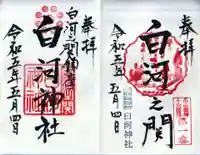 奉拝
白河之関鎮座
白河神社
令和五年五月四日
奉拝
白河之関
令和五年五月四日
白河神社